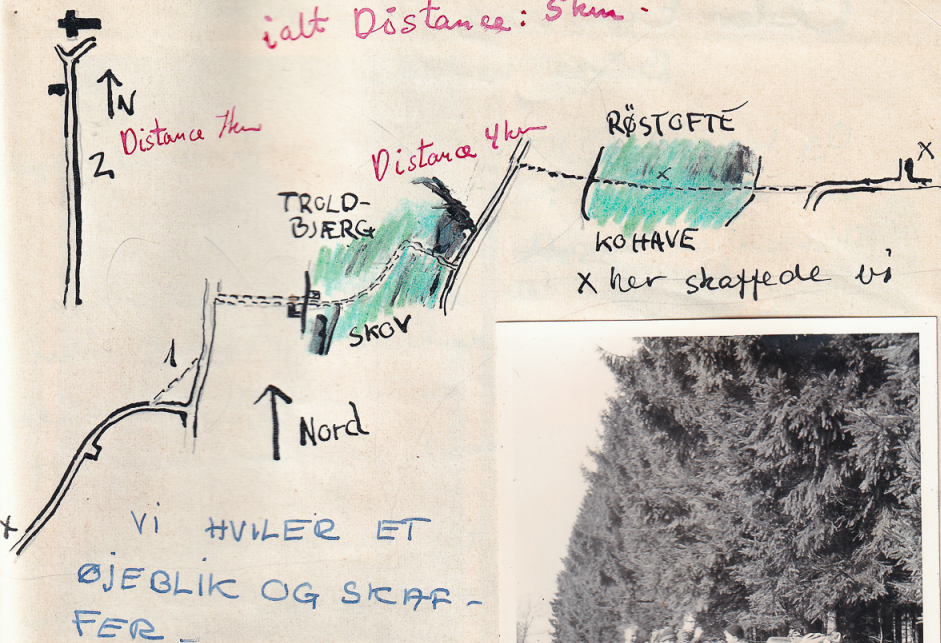 ialt Distance: 5km.
N
Distance 1km
2
Distance 4km
RØSTOFTE
x
x
TROLD-
BJÆRG
KOHAVE
x her skaffede vi
SKOV
1
Nord
x
Vi HVILER ET
ØJEBLIK OG SKAF-
FER